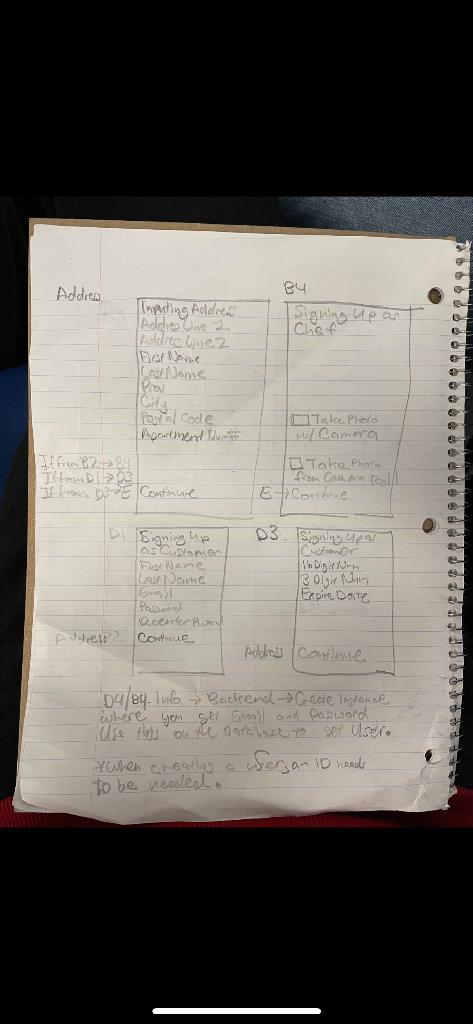 Address
Inputing Address
Address Line 1
Address Line 2
First Name
Last Name
Prov
City
Postal Code
Apartment Num#
If from B2→B4
If from D1→D3
If from D3→E
Continue
B4
Signing Up as
Chef
Take Photo
w/ Camera
Take Photo
from Camera Roll
E→Continue
D1
Signing Up
as Customer
First Name
Last Name
Email
Password
Reenter
Address
Continue
D3
Signing Up as
Customer
16 Digit Num
3 Digit Num
Expire Date
Address
Continue
D4/B4 Info → Backend → Create Instance
where you get Email and Password
Use on the Database to set User.
*When creating a user, an ID needs
to be needed.